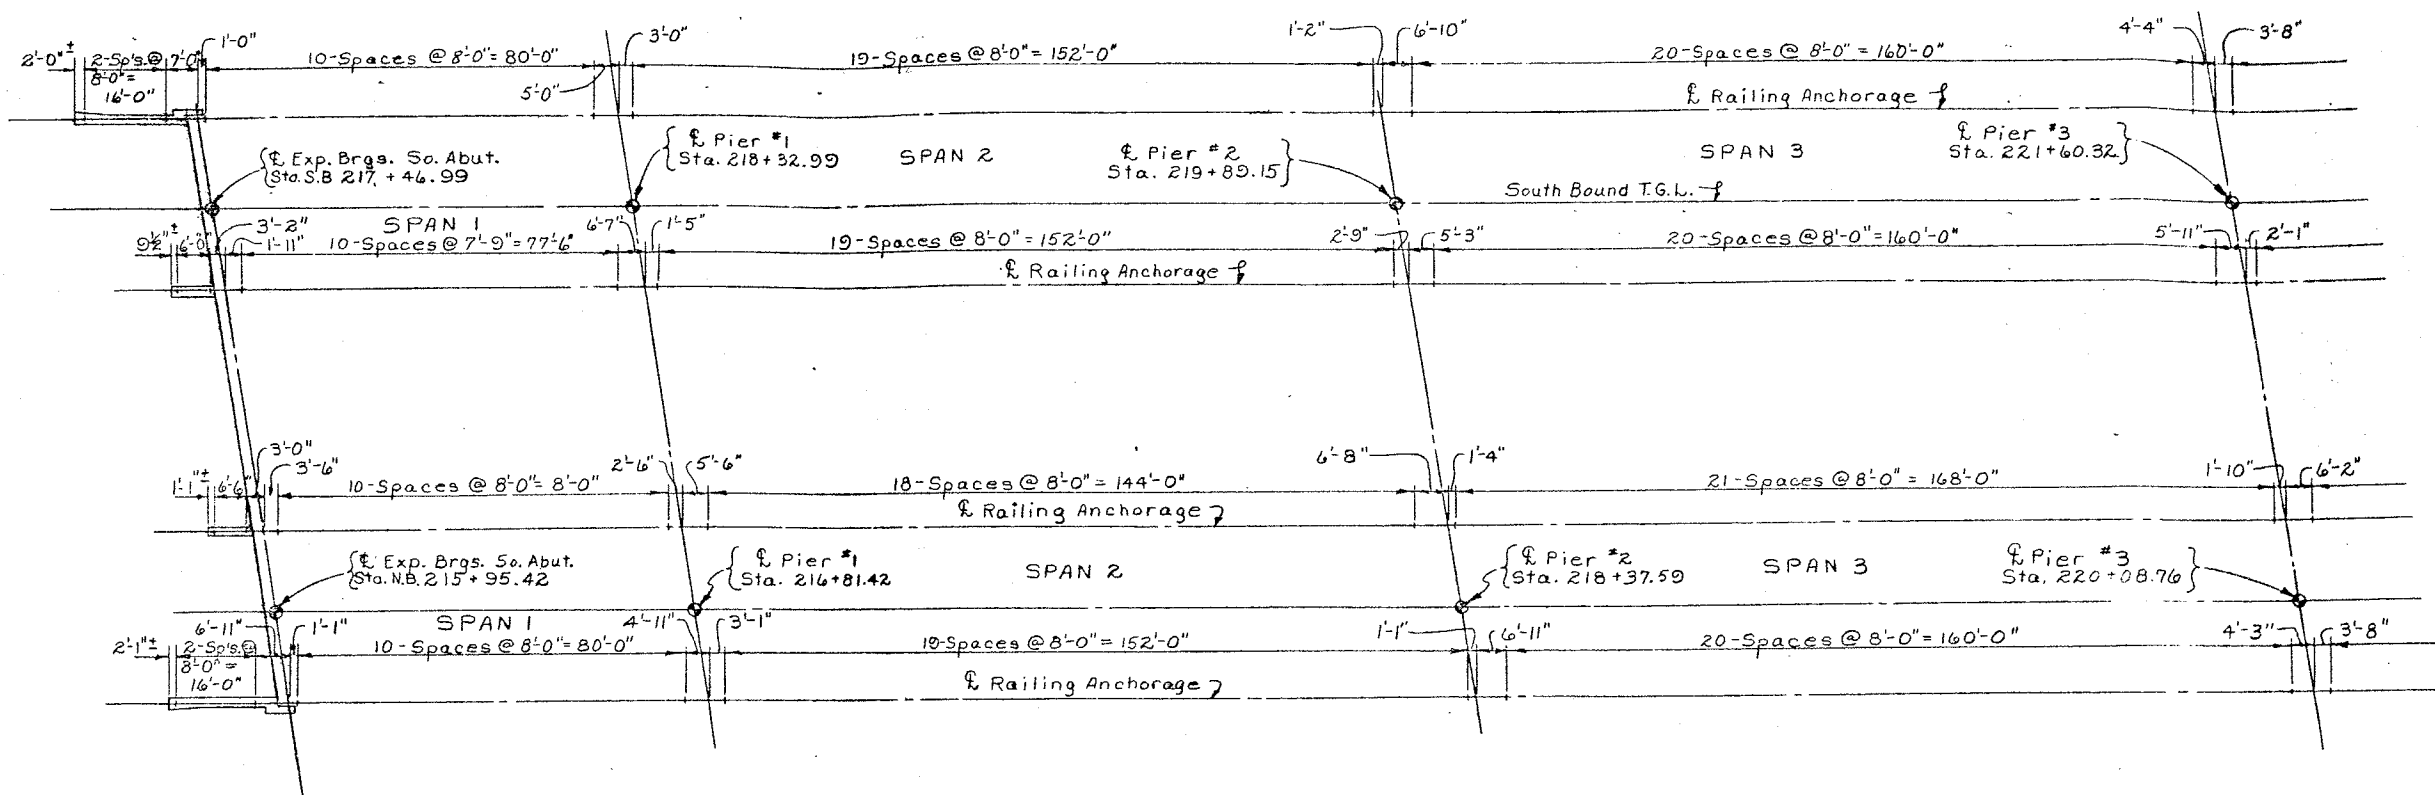 2'-0"± 2-Sp's.@ 7'-0" 1'-0" 10-Spaces @ 8'-0"= 80'-0" 3'-0" 19-Spaces @ 8'-0"= 152'-0" 1'-2" 6'-10" 20-Spaces @ 8'-0"= 160'-0" 4'-4" 3'-8"
8'-0"=
16'-0"
5'-0"
℄ Railing Anchorage
℄ Exp. Brgs. So. Abut.
Sta. S.B 217 + 46.99
℄ Pier #1
Sta. 218+32.99
SPAN 2
℄ Pier #2
Sta. 219+89.15
SPAN 3
℄ Pier #3
Sta. 221+60.32
South Bound T.G.L.
SPAN 1
9½"± 6'-0" 3'-2" 1'-11" 10-Spaces @ 7'-9"=77'-6" 6'-7" 1'-5" 19-Spaces @ 8'-0"= 152'-0" 2'-9" 5'-3" 20-Spaces @ 8'-0"=160'-0" 5'-11" 2'-1"
℄ Railing Anchorage
3'-0"
1'-1"± 6'-6" 3'-6" 10-Spaces @ 8'-0"= 8'-0" 2'-6" 5'-6" 18-Spaces @ 8'-0" = 144'-0" 6'-8" 1'-4" 21-Spaces @ 8'-0" = 168'-0" 1'-10" 6'-2"
℄ Railing Anchorage
℄ Exp. Brgs. So. Abut.
Sta. N.B. 215 + 95.42
℄ Pier #1
Sta. 216+81.42
SPAN 2
℄ Pier #2
Sta. 218+37.59
SPAN 3
℄ Pier #3
Sta. 220+08.76
SPAN 1
2'-1"± 2-Sp's.@ 6'-11" 1'-1" 10-Spaces @ 8'-0"= 80'-0" 4'-11" 3'-1" 19-Spaces @ 8'-0"= 152'-0" 1'-1" 6'-11" 20-Spaces @ 8'-0"= 160'-0" 4'-3" 3'-8"
8'-0"=
16'-0"
℄ Railing Anchorage